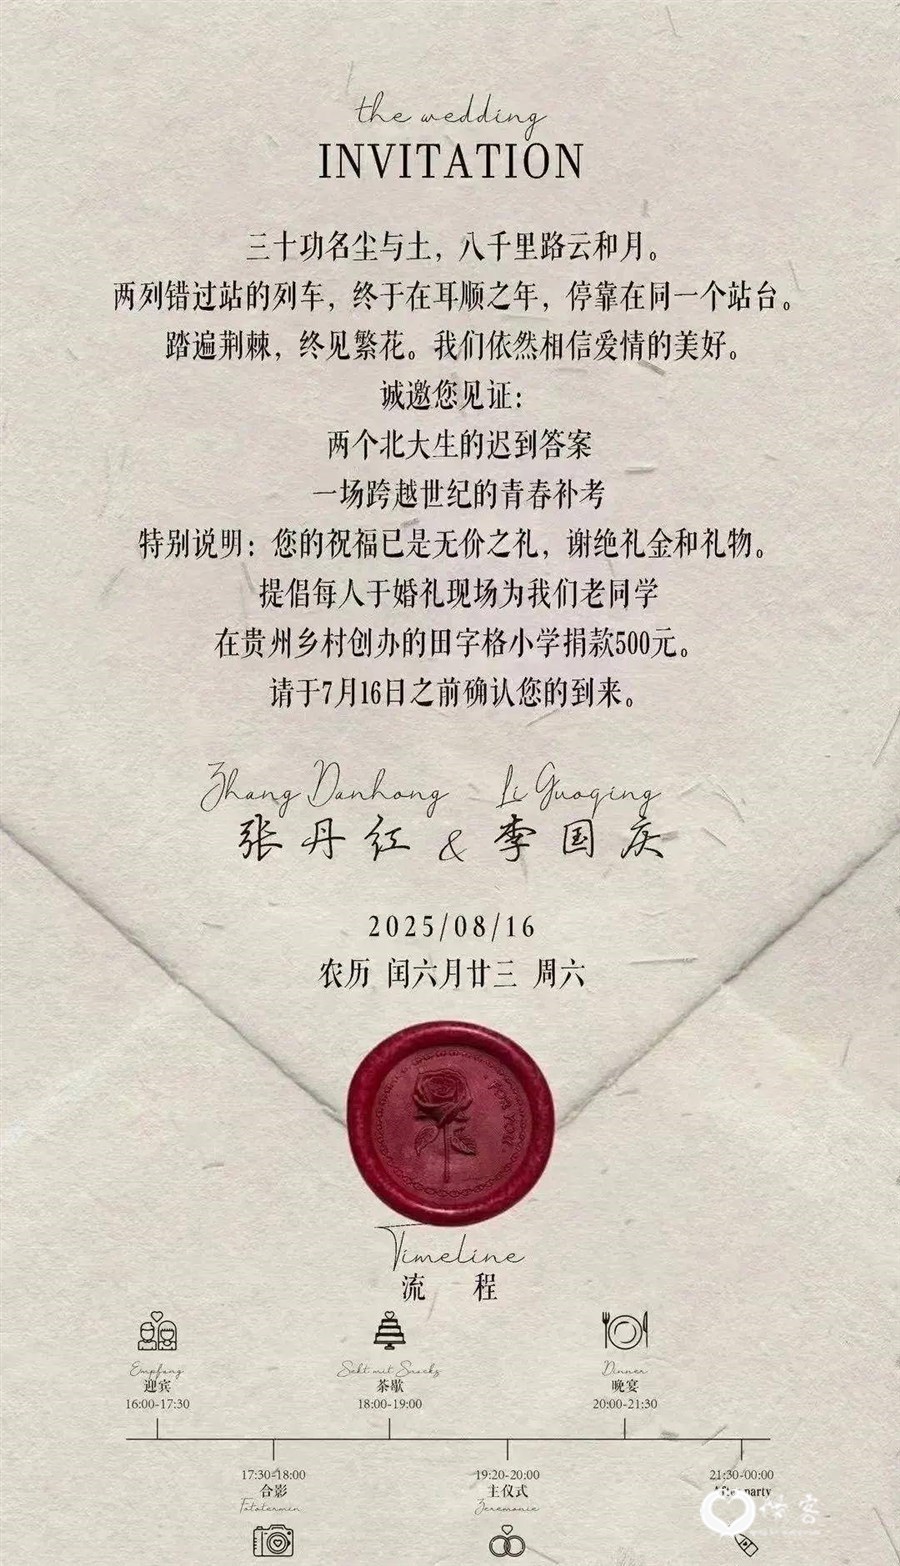 the wedding
INVITATION
三十功名尘与土，八千里路云和月。
两列错过站的列车，终于在耳顺之年，停靠在同一个站台。
踏遍荆棘，终见繁花。我们依然相信爱情的美好。
诚邀您见证：
两个北大生的迟到答案
一场跨越世纪的青春补考
特别说明：您的祝福已是无价之礼，谢绝礼金和礼物。
提倡每人于婚礼现场为我们老同学
在贵州乡村创办的田字格小学捐款500元。
请于7月16日之前确认您的到来。
Zhang Danhong Li Guoqing
张丹红 & 李国庆
2025/08/16
农历 闰六月廿三 周六
FOR YOU
Timeline
流 程
Empfang
迎宾
16:00-17:30
Sekt mit Snacks
茶歇
18:00-19:00
Dinner
晚宴
20:00-21:30
17:30-18:00
合影
Fototermin
19:20-20:00
主仪式
Zeremonie
21:30-00:00
After party